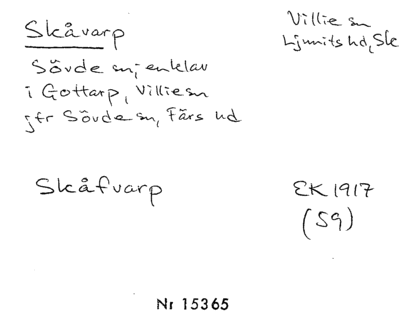 Skåvarp
Villie sn
Ljunits hd, Sk
Sövde sn; enklav
i Gottarp, Villie sn
jfr Sövde sn, Färs hd
Skåfvarp
EK 1917
(S9)
Nr 15365